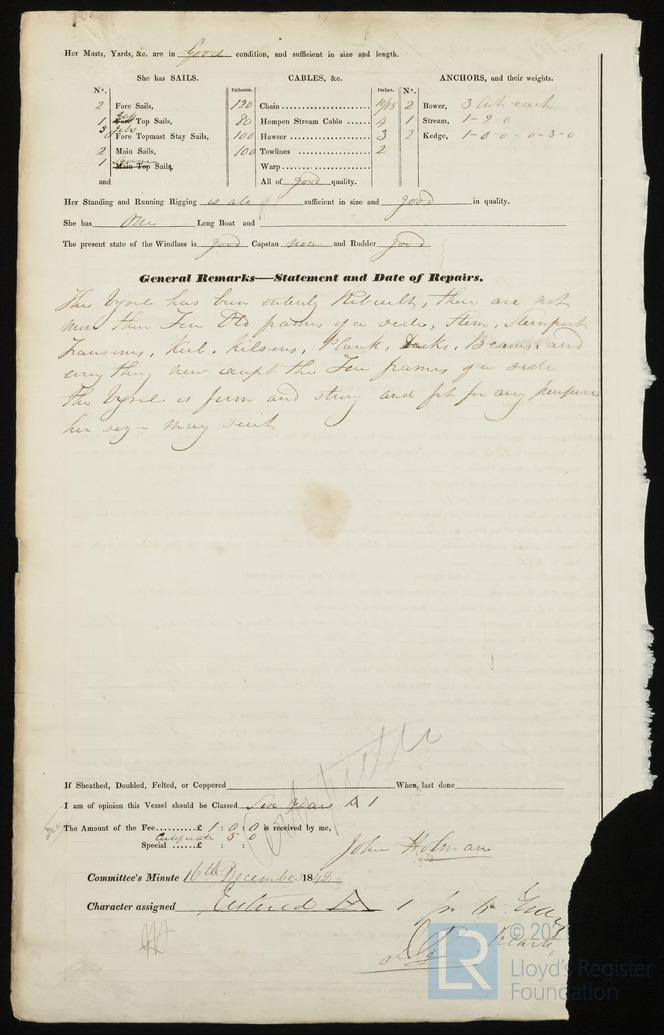 Her Masts, Yards, &c. are in Good condition, and sufficient in size and length.
She has SAILS. CABLES, &c. ANCHORS, and their weights.
N°. Fathoms. Inches. N°.
2 Fore Sails, 120 Chain 2 Bower, 3 each
1 Fore Top Sails, 80 Hempen Stream Cable 4 1 Stream, 1-2-0
5 Jibs Fore Topmast Stay Sails, 100 Hawser 3 2 Kedge, 1-0-0-0-3-0
2 Main Sails, 100 Towlines 2
1 Main Top Sails, Warp
and All of good quality.
Her Standing and Running Rigging is also sufficient in size and good in quality.
She has One Long Boat and
The present state of the Windlass is good Capstan new and Rudder good
General Remarks—Statement and Date of Repairs.
This Vessel has been entirely Rebuilt, there are not
more than Few Old frames of a side, Stem, Sternpost
Transoms, Keel, Kelsons, Plank, Decks, Beams, and
every thing new except the Few frames of a side
The Vessel is firm and strong and fit for any purpose
her may suit
If Sheathed, Doubled, Felted, or Coppered When last done
I am of opinion this Vessel should be Classed Six Years A 1
The Amount of the Fee £ 1 : 0 : 0 is received by me,
Certificate 5 0
Special £ : :
John Holman
Committee's Minute 16th December 1842
Character assigned Entered A 1
© 202
LR Lloyd's Register
Foundation